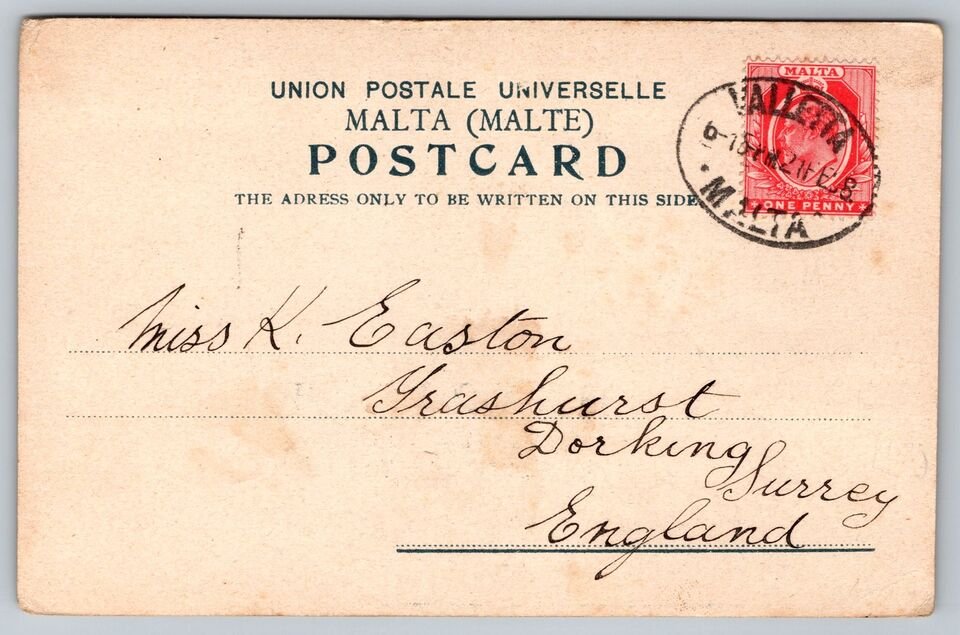 UNION POSTALE UNIVERSELLE
MALTA (MALTE)
POSTCARD
THE ADRESS ONLY TO BE WRITTEN ON THIS SIDE
MALTA
ONE PENNY
VALLETTA
21 FE 08
MALTA
Miss K. Easton
Grashurst
Dorking
Surrey
England